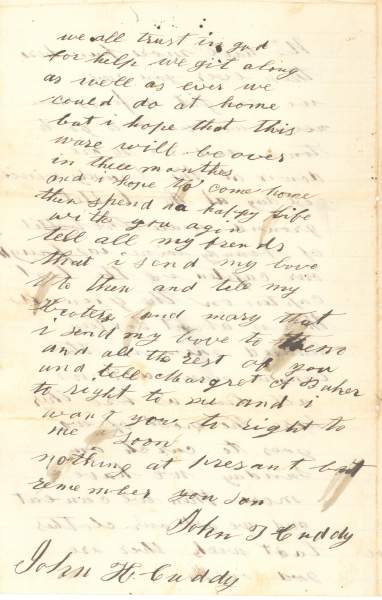 we all trust in god
for help we git along
as well as ever we
could do at home
but i hope that this
ware will be over
in thee monthes
and i hope to come home
then spend a happy life
with you agin
tell all my frends
that i send my love
to then and tell my
Broters and mary that
i send my love to them
and all the rest of you
and tell Margret
to right to me and i
want you to right to
me soon
nothing at presant but
remember you son
John T Cuddy
John H. Cuddy